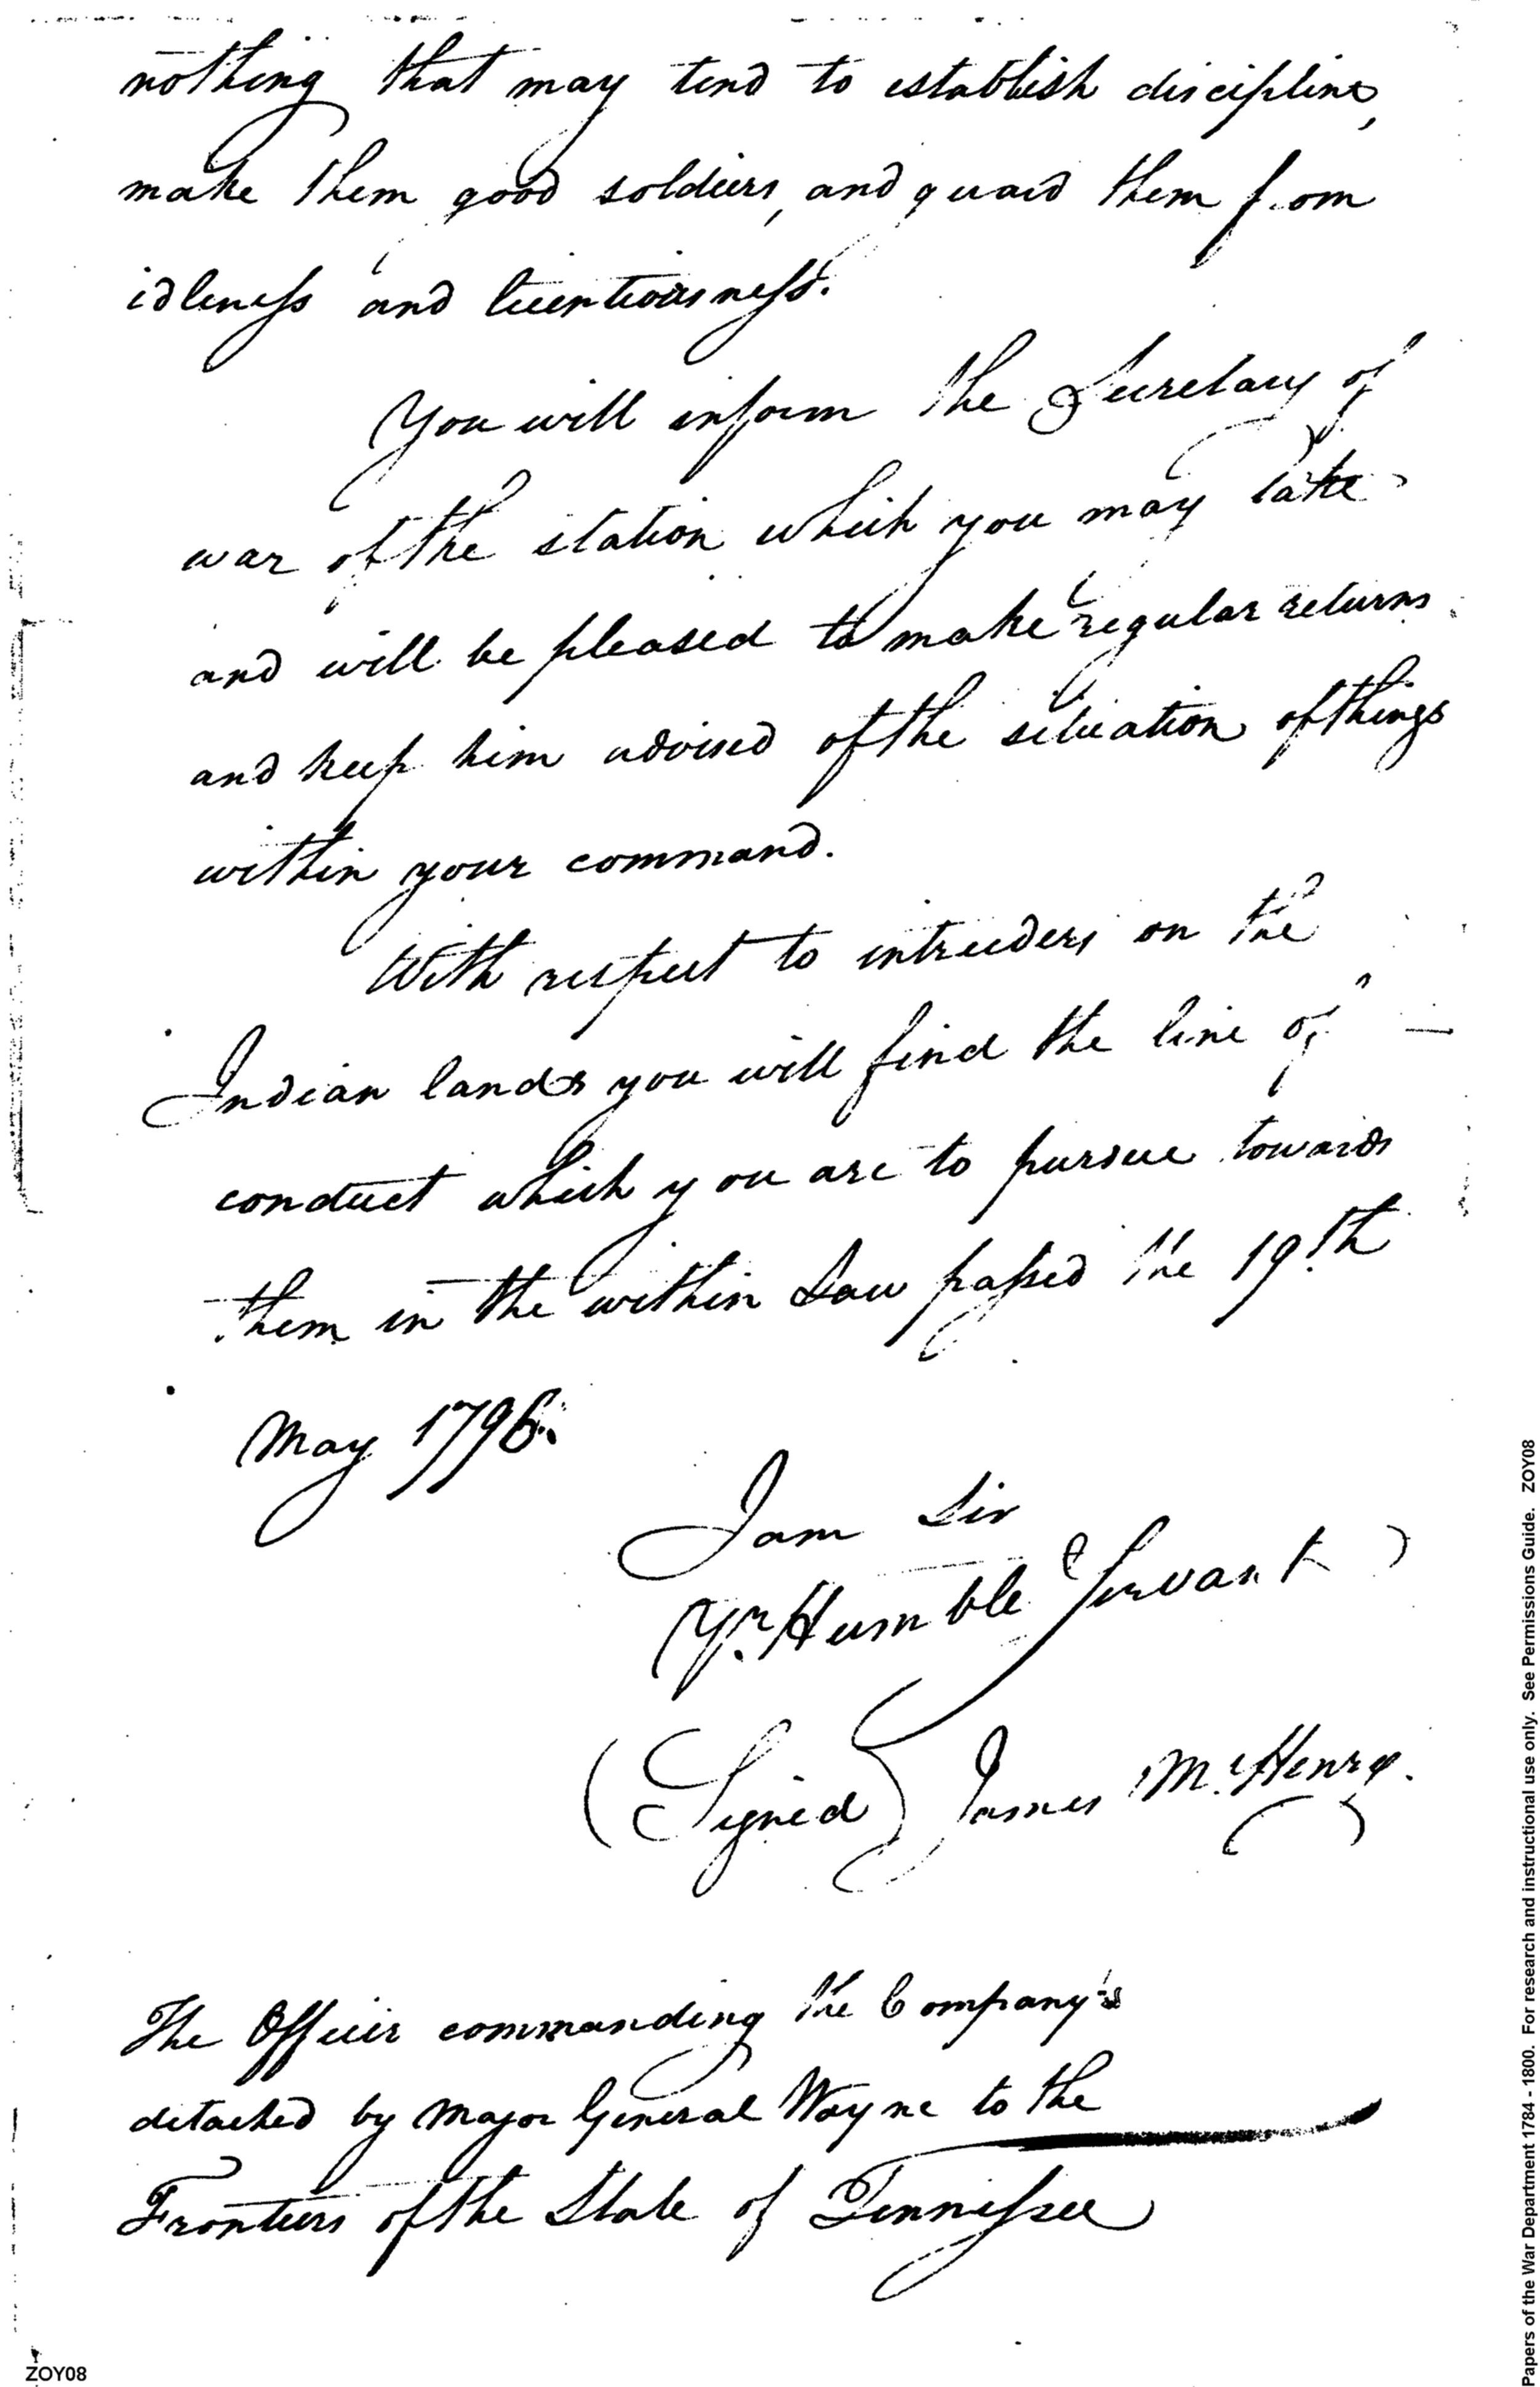 nothing that may tend to establish discipline,
make them good soldiers, and guard them from
idleness and licentiousness.
You will inform the Secretary of
war of the station which you may take
and will be pleased to make regular returns
and keep him advised of the situation of things
within your command.
With respect to intruders on the
Indian lands you will find the line of
conduct which you are to pursue towards
them in the within Law passed the 19th
May 1796.
I am Sir
Yr. Humble Servant
(Signed) James McHenry.
The Officer commanding the Company's
detached by Major General Wayne to the
Frontiers of the State of Tennessee
ZOY08
Papers of the War Department 1784 - 1800. For research and instructional use only. See Permissions Guide. ZOY08